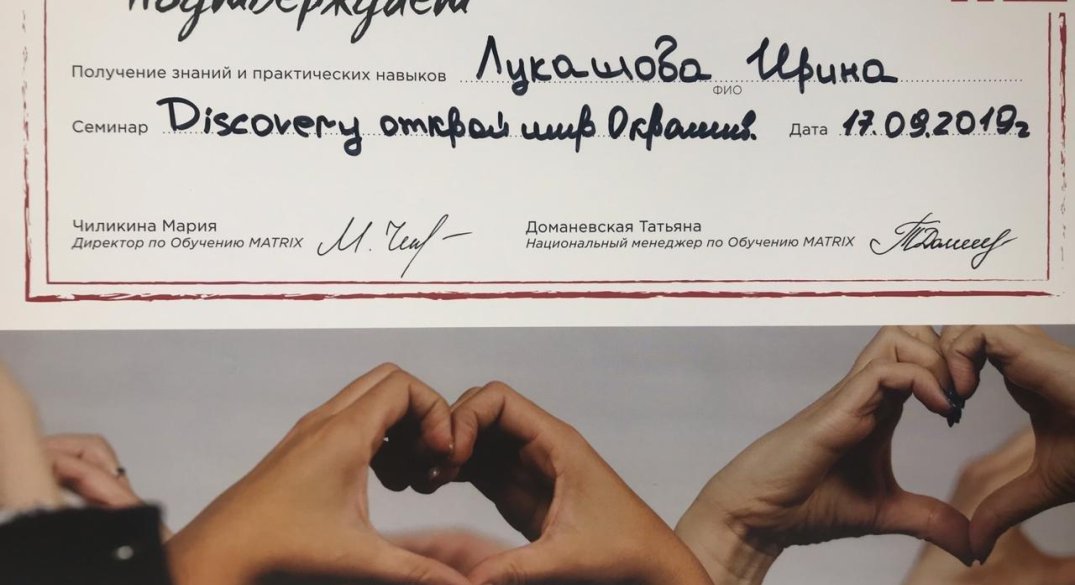 подтверждает
Получение знаний и практических навыков Лукашова Ирина
ФИО
Семинар Discovery открой мир Окрашив. Дата 17.09.2019г
Чиликина Мария
Директор по Обучению MATRIX
Доманевская Татьяна
Национальный менеджер по Обучению MATRIX